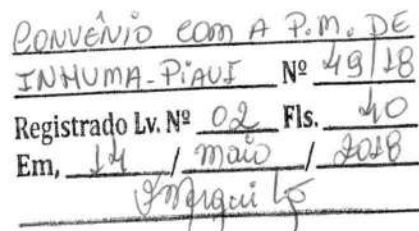 CONVÊNIO COM A P.M. DE
INHUMA-PIAUÍ Nº 49/18
Registrado Lv. Nº 02 Fls. 40
Em, 14 / maio / 2018